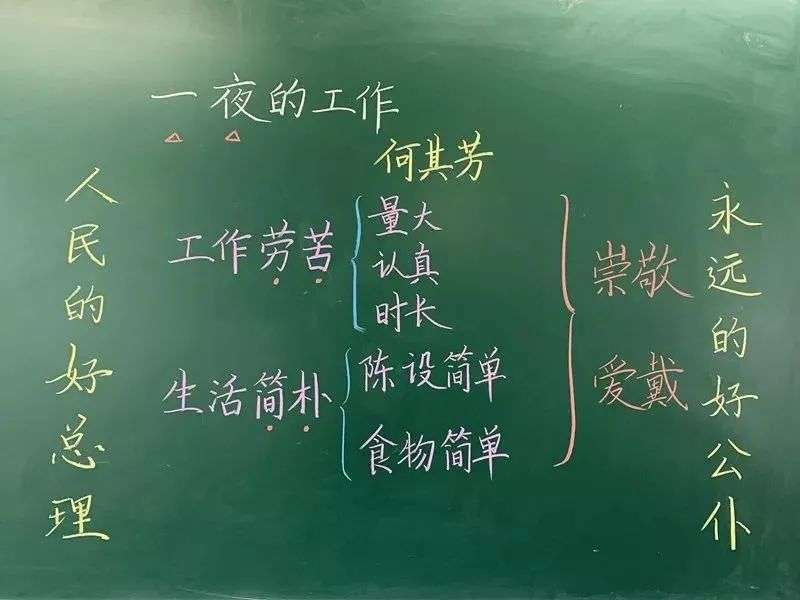 一夜的工作
何其芳
人民的好总理
工作劳苦
量大
认真
时长
生活简朴
陈设简单
食物简单
崇敬
爱戴
永远的好公仆